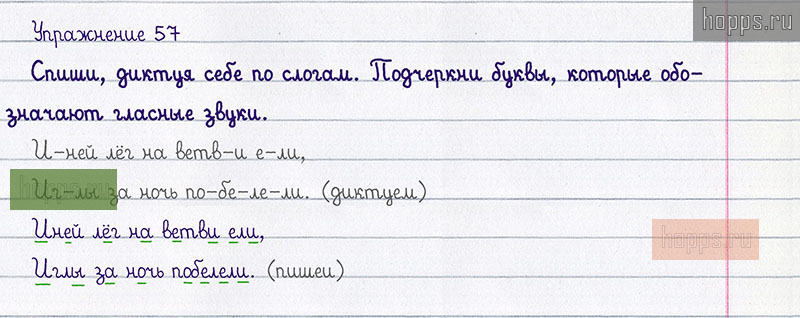 hopps.ru
Упражнение 57
Спиши, диктуя себе по слогам. Подчеркни буквы, которые обо-
значают гласные звуки.
И-ней лёг на ветв-и е-ли,
Иг-лы за ночь по-бе-ле-ли. (диктуем)
Иней лёг на ветви ели,
hopps.ru
Иглы за ночь побелели. (пишеи)